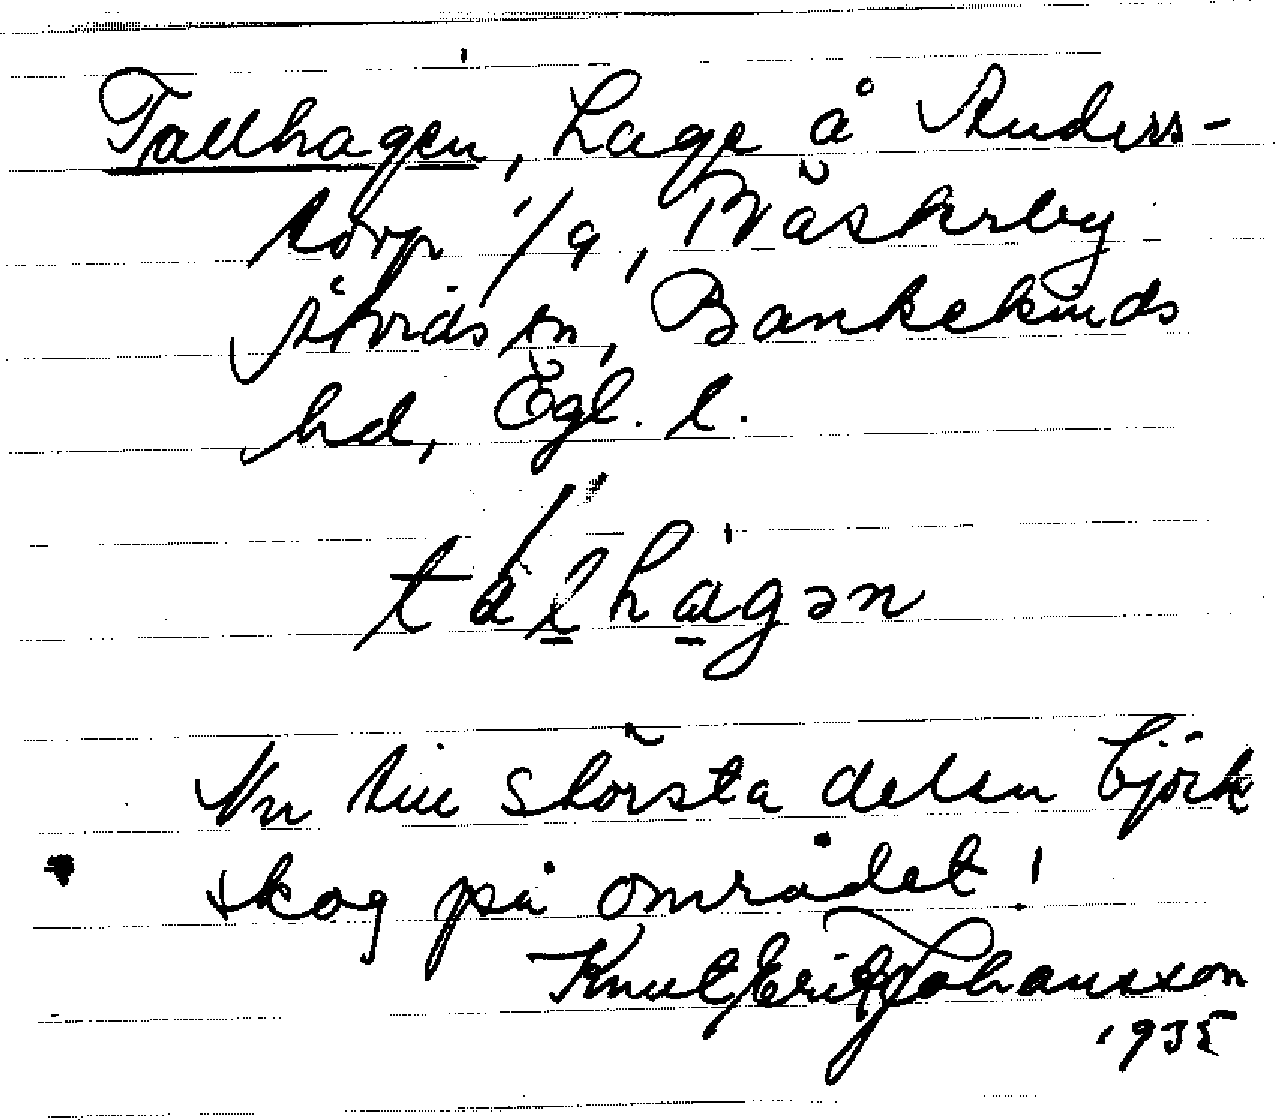 Tallhagen, hage å Anders-
torp 1/9,
Åtvids sn, Bankekinds
hd, Ögl. l.
tálhàgən
Nu till största delen björk
skog på området!
Knut Erik Johansson
1935